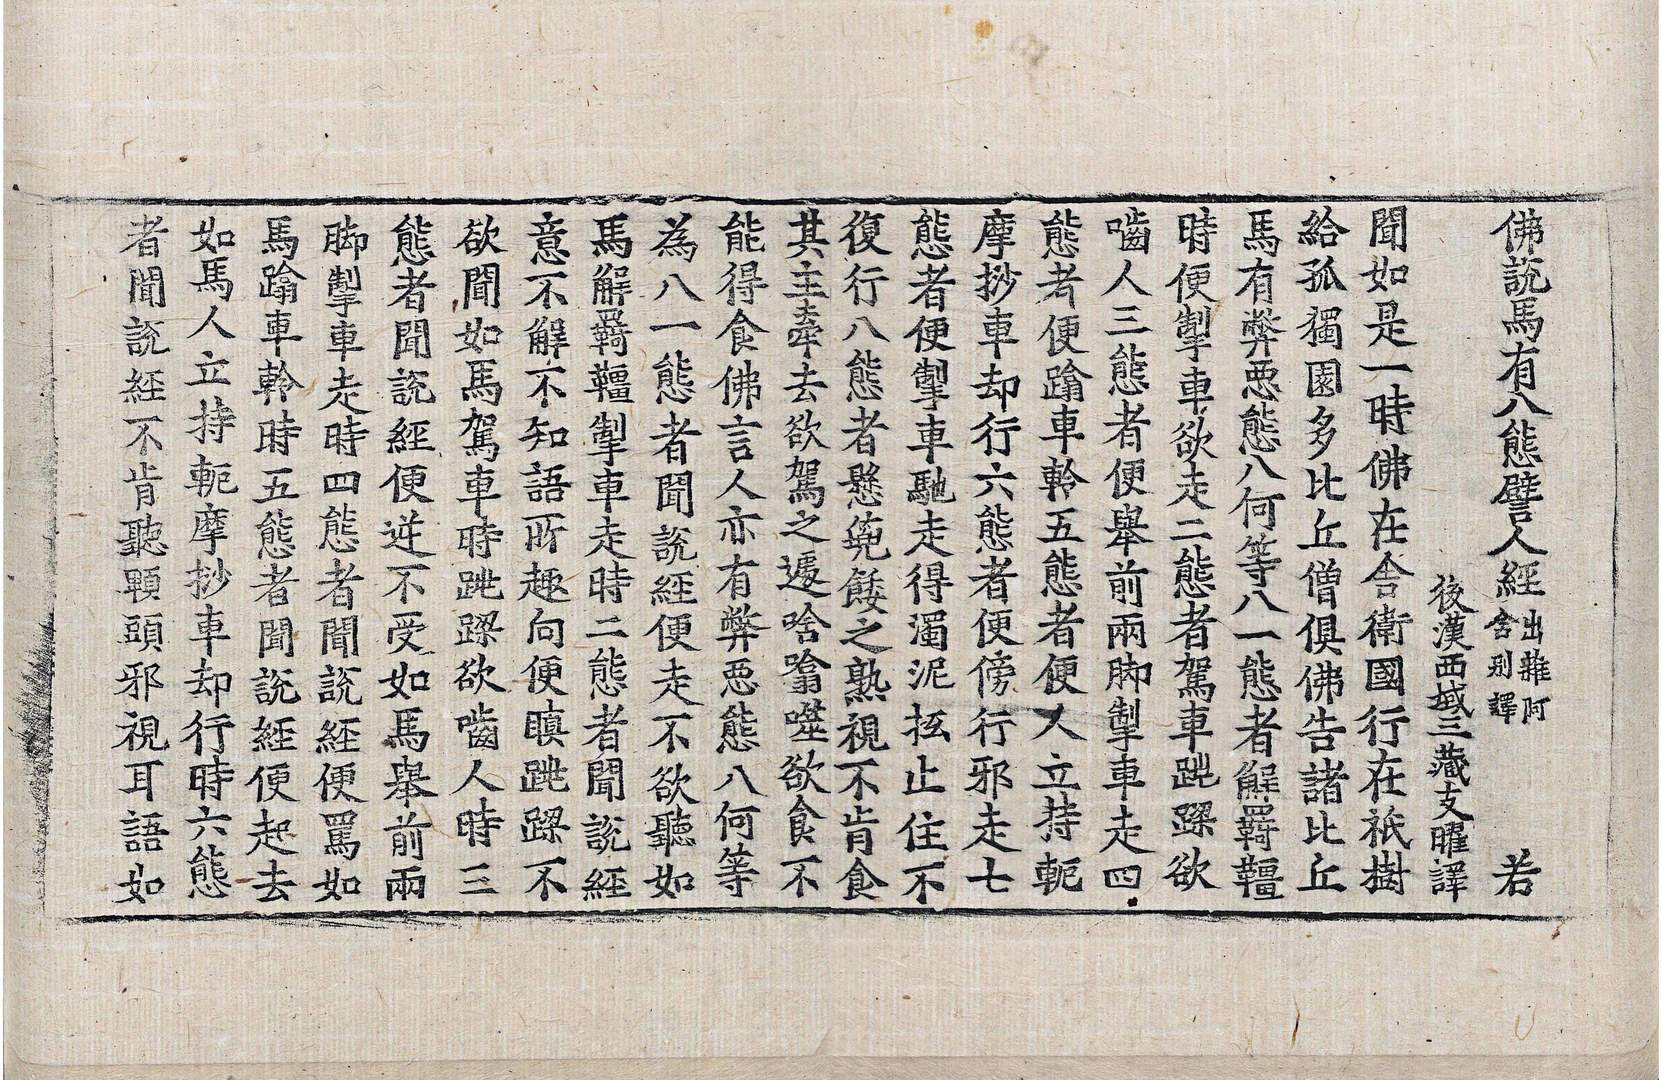 佛說馬有八態譬人經 出雜阿含別譯 若
後漢西域三藏支曜譯
聞如是一時佛在舍衛國行在祇樹
給孤獨園多比丘僧俱佛告諸比丘
馬有弊惡態八何等八一態者解羇韁
時便掣車欲走二態者駕車跳踯欲
嚙人三態者便舉前兩脚掣車走四
態者便踰車軨五態者便人立持軛
摩抄車却行六態者便傍行邪走七
態者便掣車馳走得濁泥抂止住不
復行八態者懸篼餧之熟視不肯食
其主牽去欲駕之遽唅噏噬欲食不
能得食佛言人亦有弊惡態八何等
為八一態者聞說經便走不欲聽如
馬解羇韁掣車走時二態者聞說經
意不解不知語所趣向便瞋跳踯不
欲聞如馬駕車時跳踯欲嚙人時三
態者聞說經便逆不受如馬舉前兩
脚掣車走時四態者聞說經便罵如
馬踰車軨時五態者聞說經便起去
如馬人立持軛摩抄車却行時六態
者聞說經不肯聽顆頭邪視耳語如